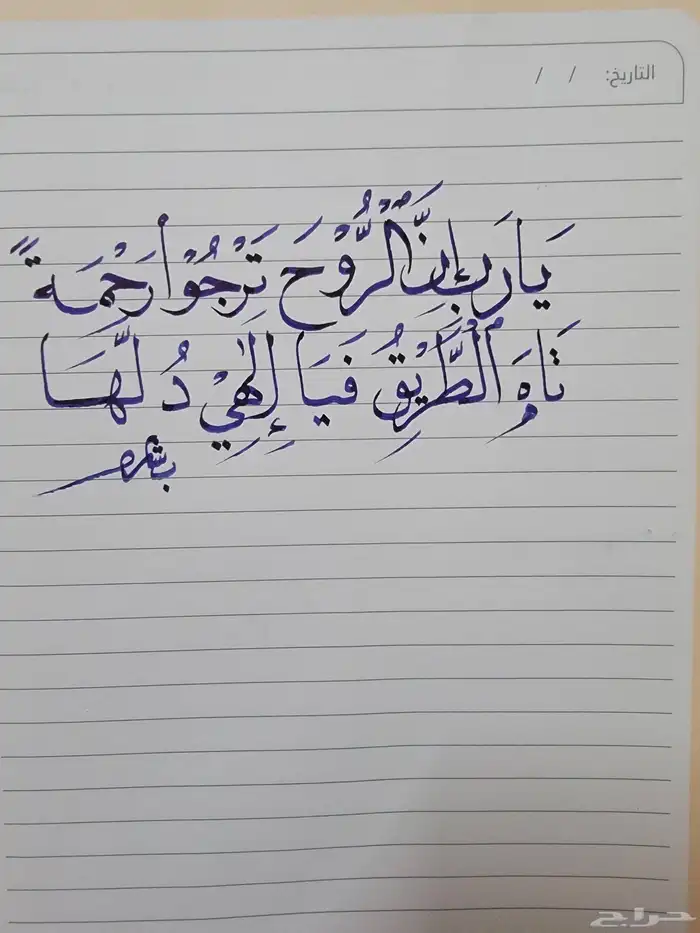 التاريخ: / /
يَا رَبِ إِنَّ الرُّوْحَ تَرْجُوْا رَحْمَةً
تَاهَ الطَّرِيْقُ فَيَا إِلٰهِيْ دُلَّهَا
بشرى
حراج